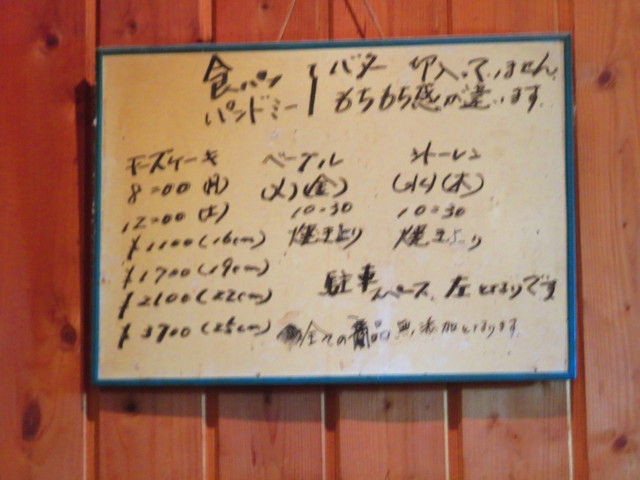 食パン バター 卵入っていません
パンドミー もちもち感が違います。
チーズケーキ ベーグル シュトーレン
8:00(月) (火)(金) (水)(木)
12:00(土) 10:30 10:30
¥1100(16cm) 焼き上り 焼き上り
¥1700(19cm)
¥2100(22cm) 駐車スペース、左となりです
¥3700(25cm) 全ての商品無添加となります。